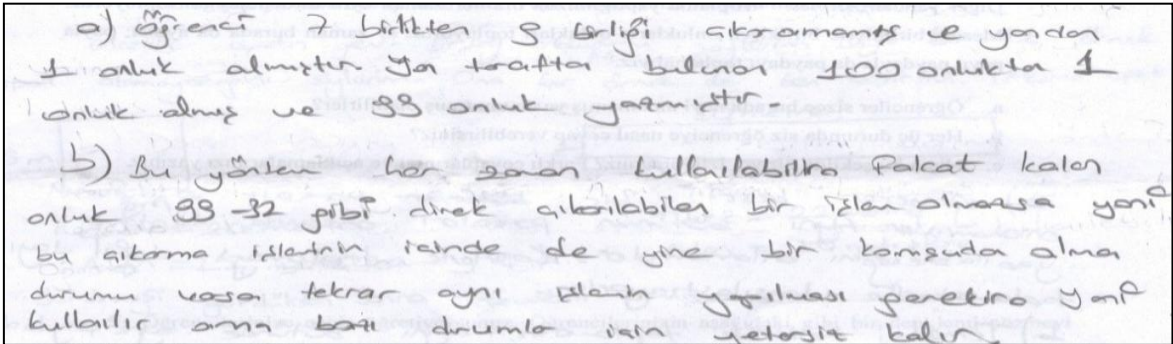 a) Öğrenci 7 birlikte 9 birliği çıkaramamış ve yandan
1 onluk almıştır. Ya taraftaki 100 onlukta 1
onluk almış ve 99 onluk yazmıştır.
b) Bu yöntem her zaman kullanılabilir. Fakat kalan
onluk 99-32 gibi direk çıkarılabilen bir işlem olmazsa yani
bu çıkarma işleminin içinde de yine bir komşudan alma
durumu varsa tekrar aynı işlemin yapılması gerekir. Yani
kullanılır ama bazı durumlar için yetersiz kalır.